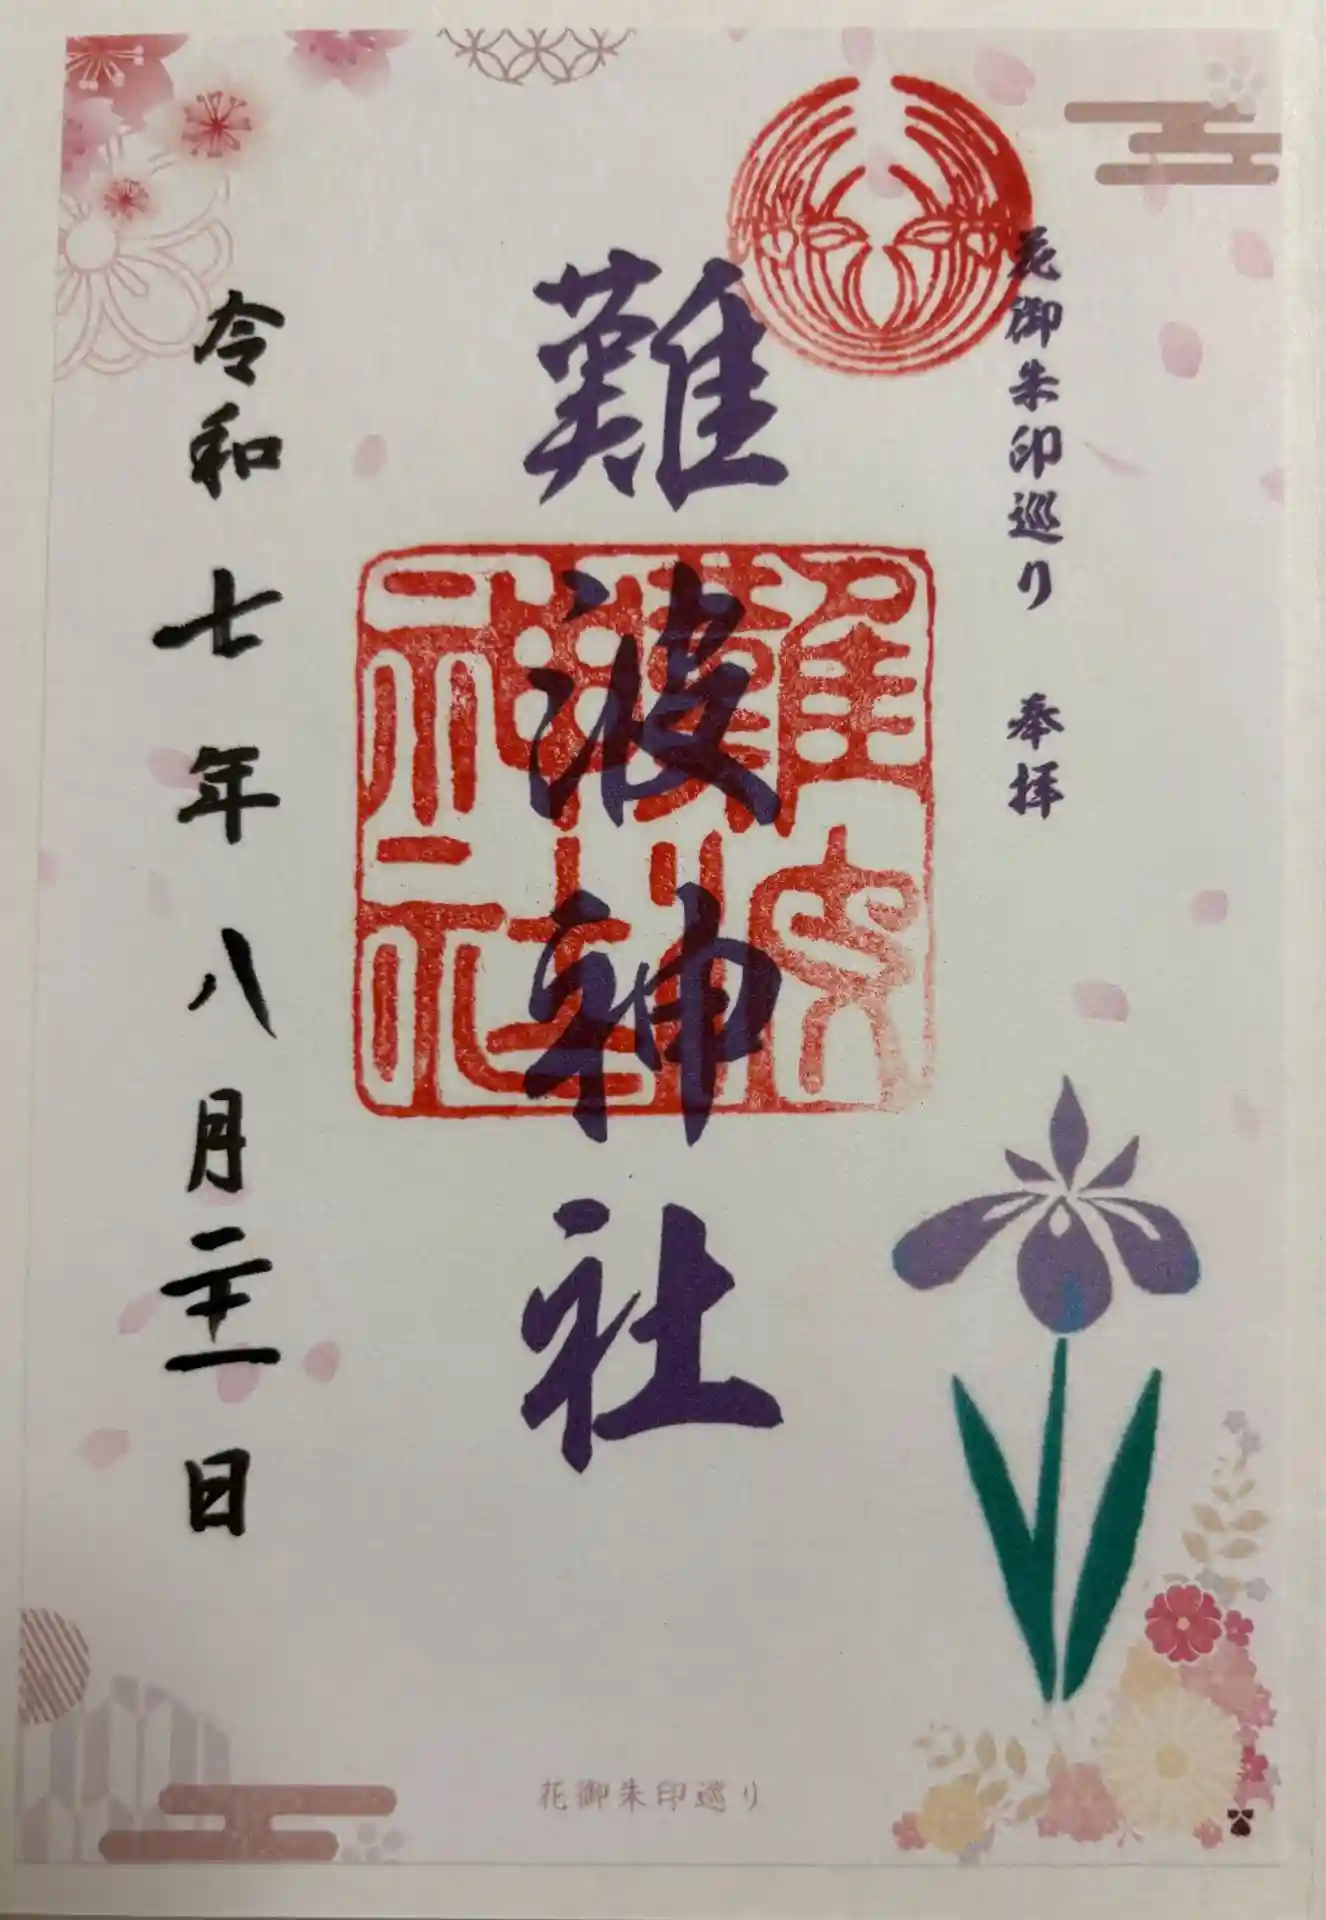 花御朱印巡り 奉拝
難波神社
令和七年八月二十一日
花御朱印巡り